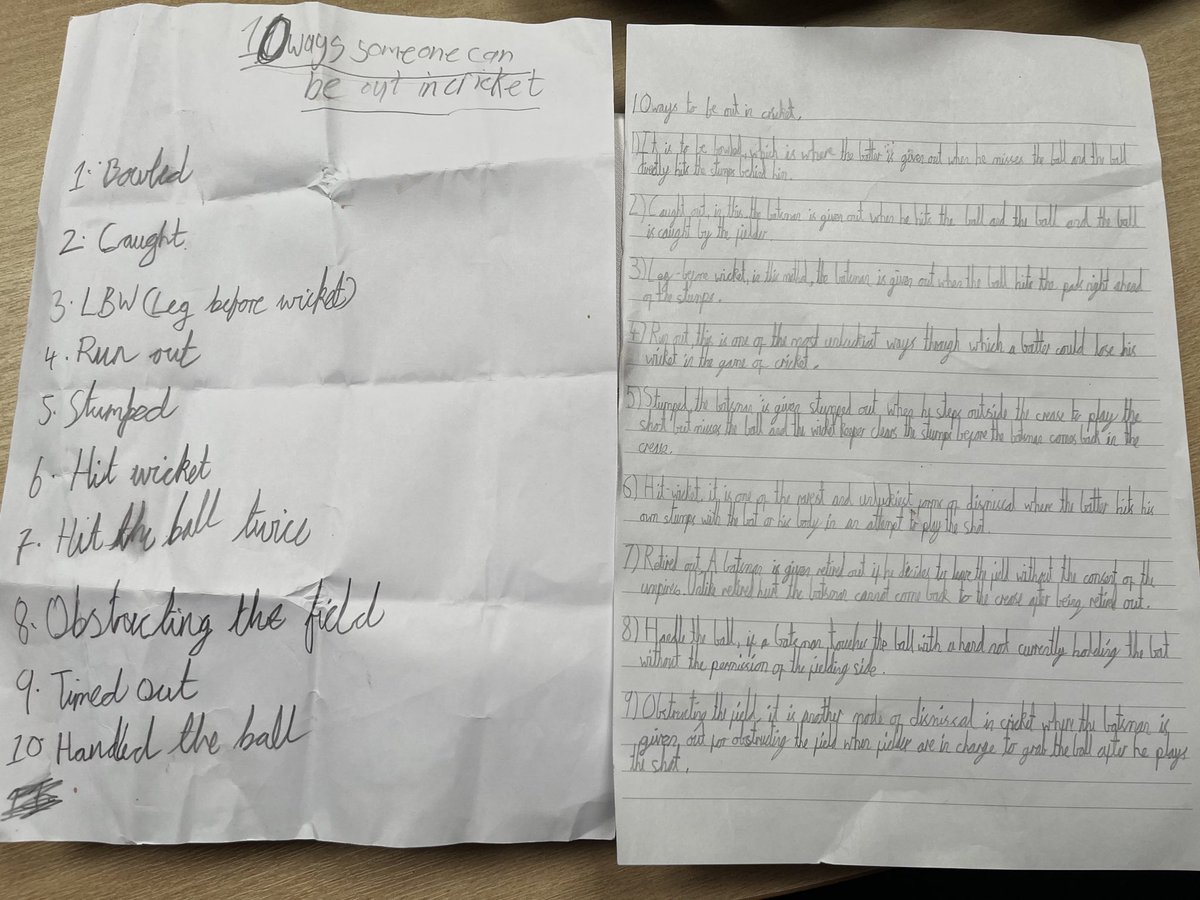 10 ways someone can
be out in cricket
1. Bowled
2. Caught.
3. LBW (Leg before wicket)
4. Run out
5. Stumped
6. Hit wicket
7. Hit the ball twice
8. Obstructing the field
9. Timed out
10 Handled the ball
10 ways to be out in cricket.
1) It is to be bowled, which is where the batter is given out when he misses the ball and the ball
directly hits the stumps behind him.
2) Caught out, in this the batsman is given out when he hits the ball and the ball and the ball
is caught by the fielder.
3) Leg-before wicket, in this method, the batsman is given out when the ball hits the pads right ahead
of the stumps.
4) Run out, this is one of the most unluckiest ways through which a batter could lose his
wicket in the game of cricket.
5) Stumped, the batsman is given stumped out, when he steps outside the crease to play the
short but misses the ball and the wicket keeper clears the stumps before the batsman comes back in the
crease.
6) Hit-wicket, it is one of the rarest and unluckiest forms of dismissal where the batter hits his
own stumps with the bat or his body in an attempt to play the shot.
7) Retired out, A batsman is given retired out if he decides to leave the field without the consent of the
umpires. Unlike retired hurt the batsman cannot come back to the crease after being retired out.
8) Handle the ball, if a batsman touches the ball with a hand not currently holding the bat
without the permission of the fielding side.
9) Obstructing the field, it is another mode of dismissal in cricket where the batsman is
given out for obstructing the field when fielder are in charge to grab the ball after he plays
the shot.